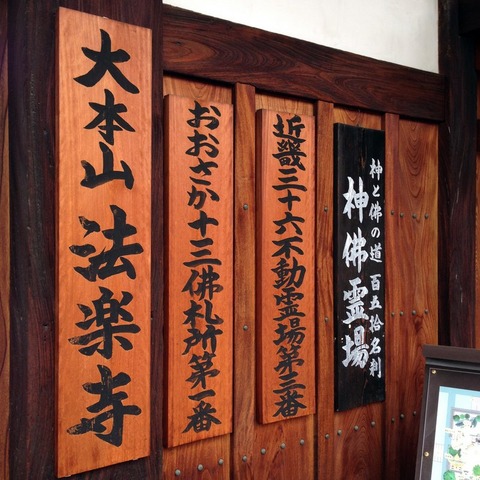 大本山 法楽寺
おおさか十三佛札所第一番
近畿三十六不動霊場第三番
神と佛の道 百五拾名刹
神佛霊場